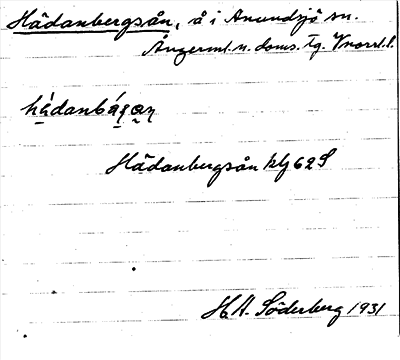 Hädanbergsån, å i Anundsjö sn.
Ångerml. n. doms. tg. Vnorrl. l.
Hädanbergsån hbl 62 S
H. A. Söderberg 1931